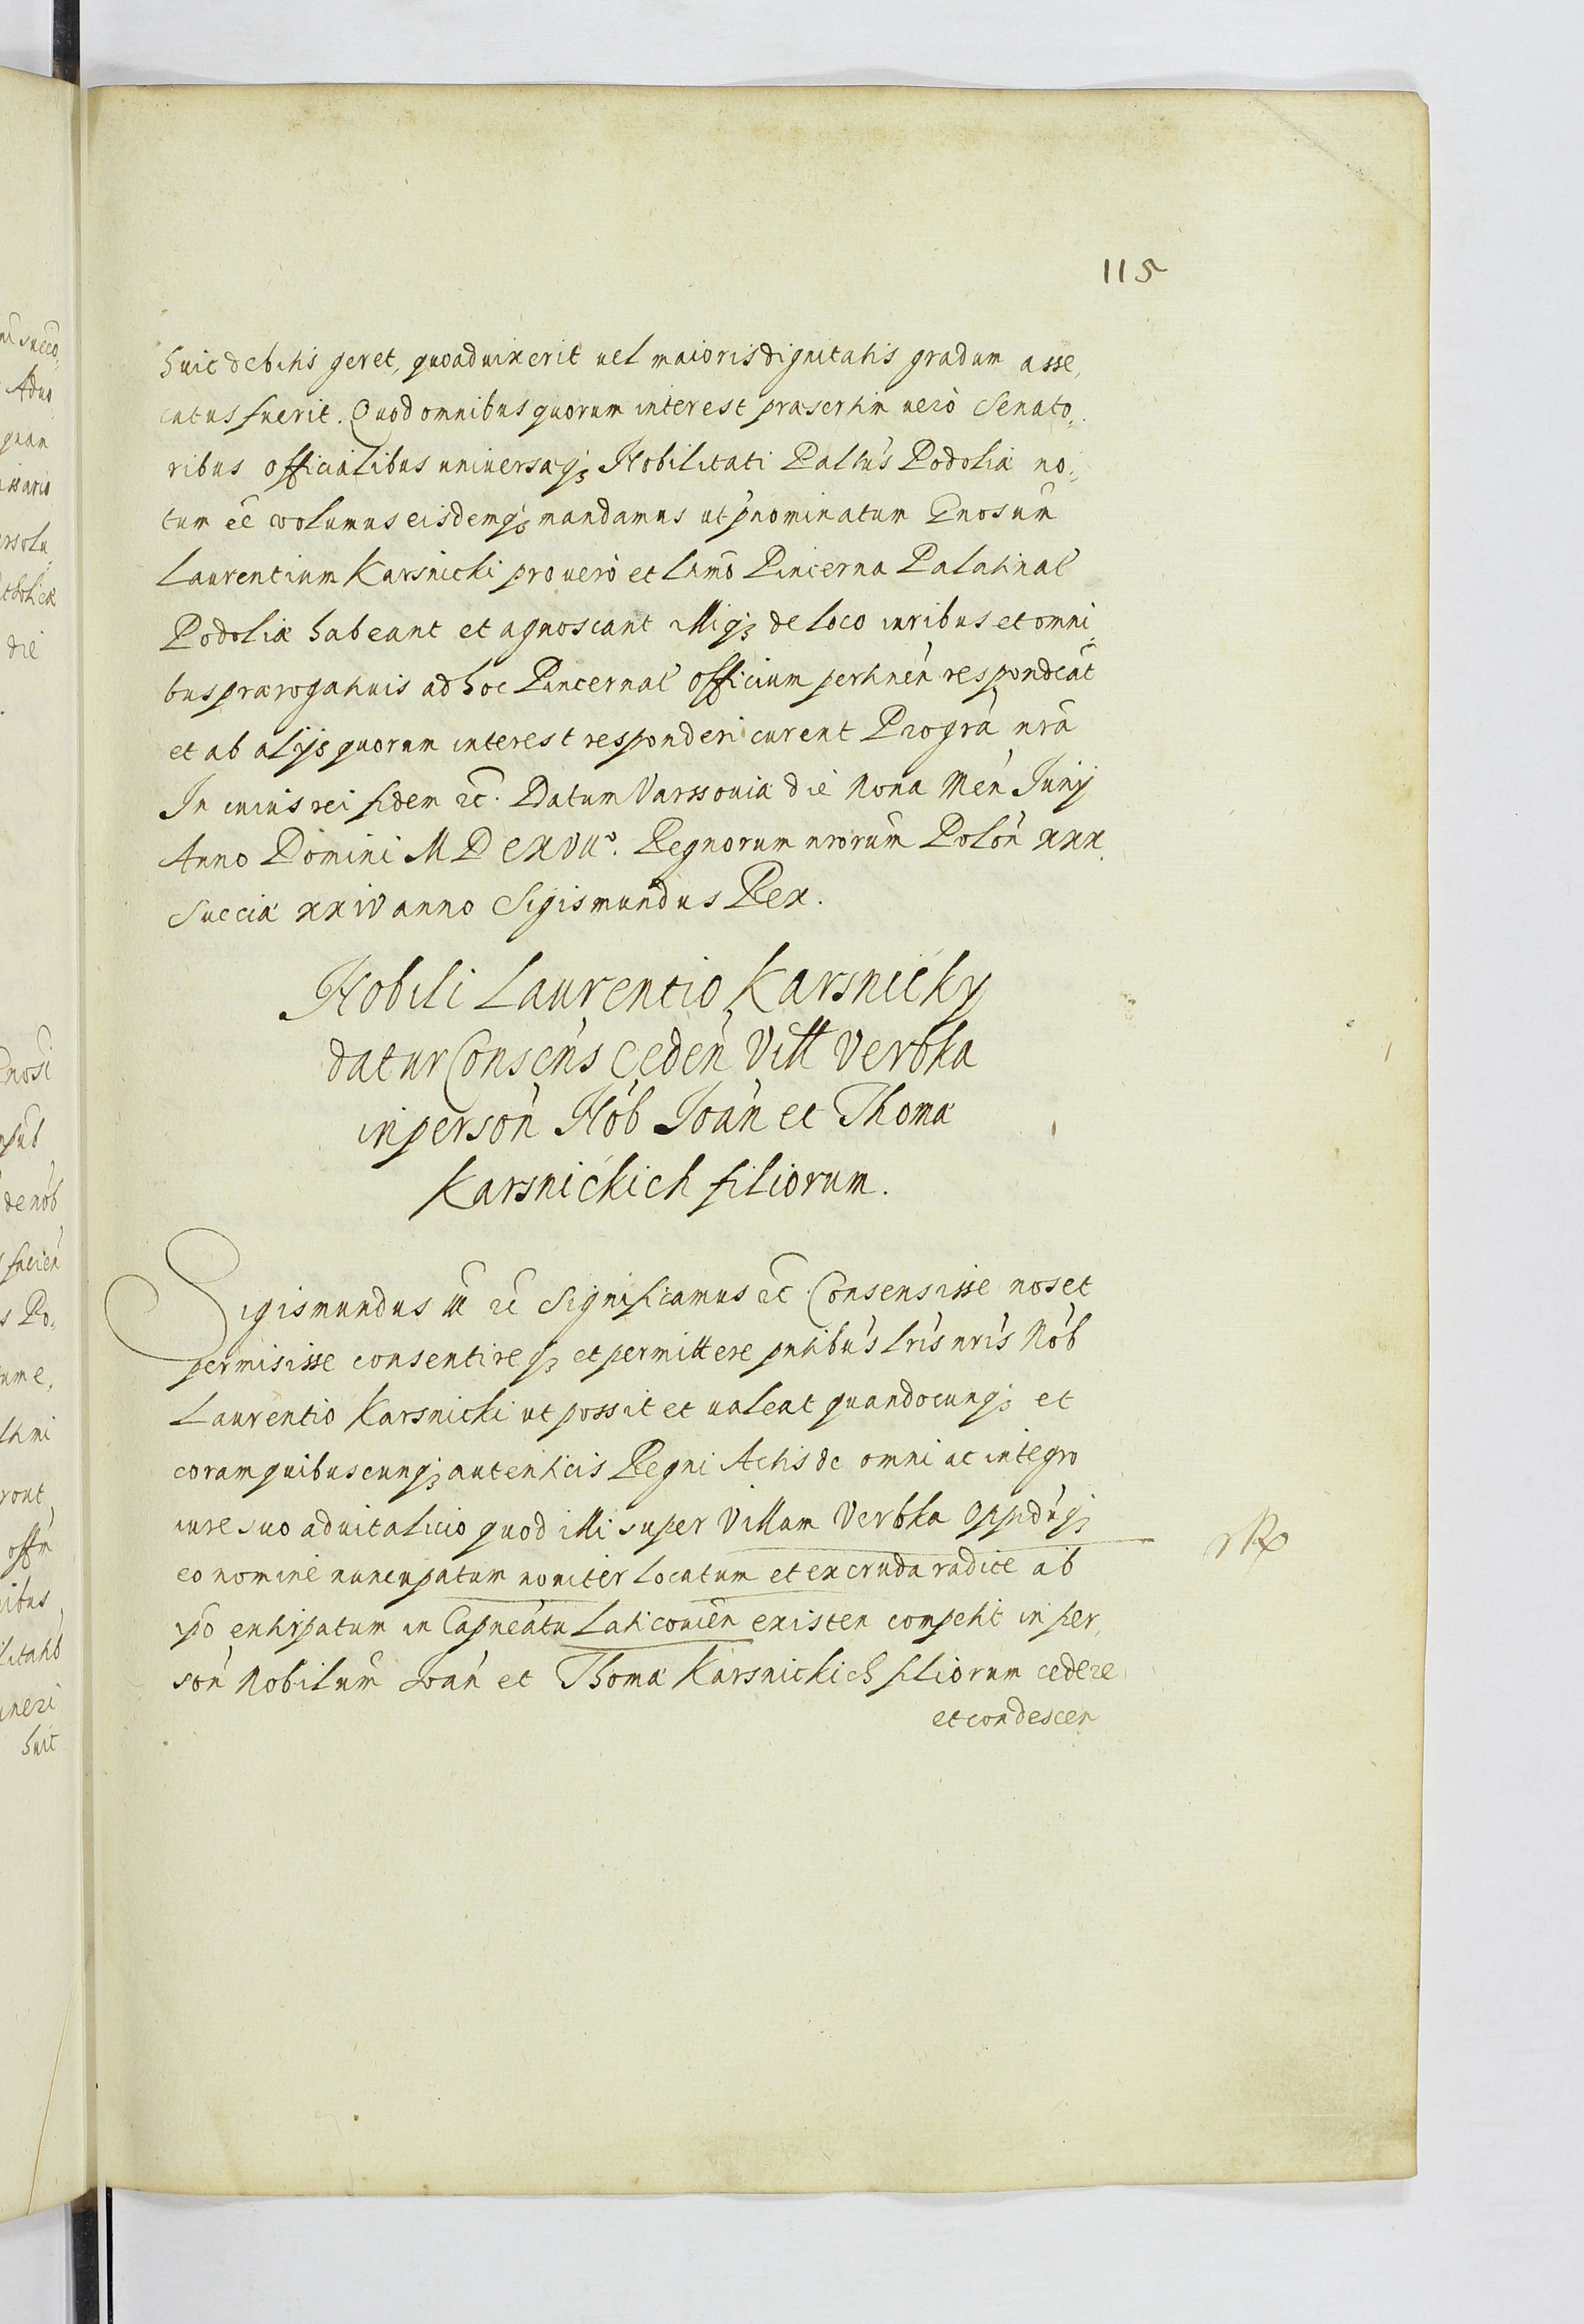 115
huic debitis geret, quoad vixerit vel maioris dignitatis gradum asse,
cutus fuerit. Quod omnibus quorum interest præsertim verò Senato,
ribus officialibus universæq; Nobilitati Paltús Podoliæ no,
tum eê volumus eisdemq; mandamus ut pnominatum Gnosum
Laurentium Karsnicki pro vero et Ltimo Pincerna Palatinal
Podoliæ habeant et agnoscant illiq; de loco iuribus et omni,
bus prærogativis ad hoc Pincernal officium pertinen respondeāt
et ab alijs quorum interest responderi curent Pro gra nra
In cuius rei fidem etc. Datum Varssoviæ die Nona Men Junij
Anno Domini M D CXVII°. Regnorum nrorum Polon XXX
Sueciæ XXIV anno Sigismundus Rex.
Nobili Laurentio Karsnicky
datur Consens Ceden Vill Verbka
in person Nob Joan et Thomæ
Karsnickich filiorum.
Sigismundus III etc Significamus etc. Consensisse nos et
permisisse consentireq; et permittere pntibus Lris nris Nob
Laurentio Karsnicki ut possit et valeat quandocunq; et
coram quibuscunq; autenticis Regni Actis de omni ac integro
iure suo advitalitio quod illi super Villam Verbka Oppidūq;
eo nomine nuncupatum noviter locatum et ex cruda radice ab
ipō extirpatum in Capneātu Laticovien existen competit in per,
son Nobilium Joan et Thomæ Karsnickich filiorum cedere
et condescen
huic
die